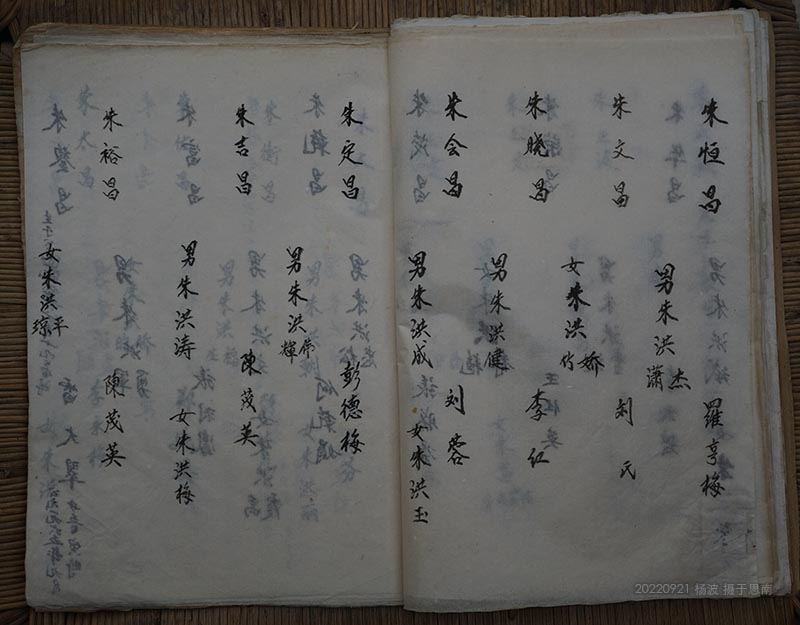 朱恒昌 羅亨梅
男朱洪杰
瀟
朱文昌 刘氏
女朱洪娇
竹
朱晓昌 李仁
男朱洪健
朱会昌 刘蓉
男朱洪成 女朱洪玉
朱定昌 彭德梅
男朱洪伟
輝
朱吉昌 陳茂英
男朱洪涛 女朱洪梅
朱裕昌 陳茂英
女朱洪平
琼
20220921 杨波 摄于思南